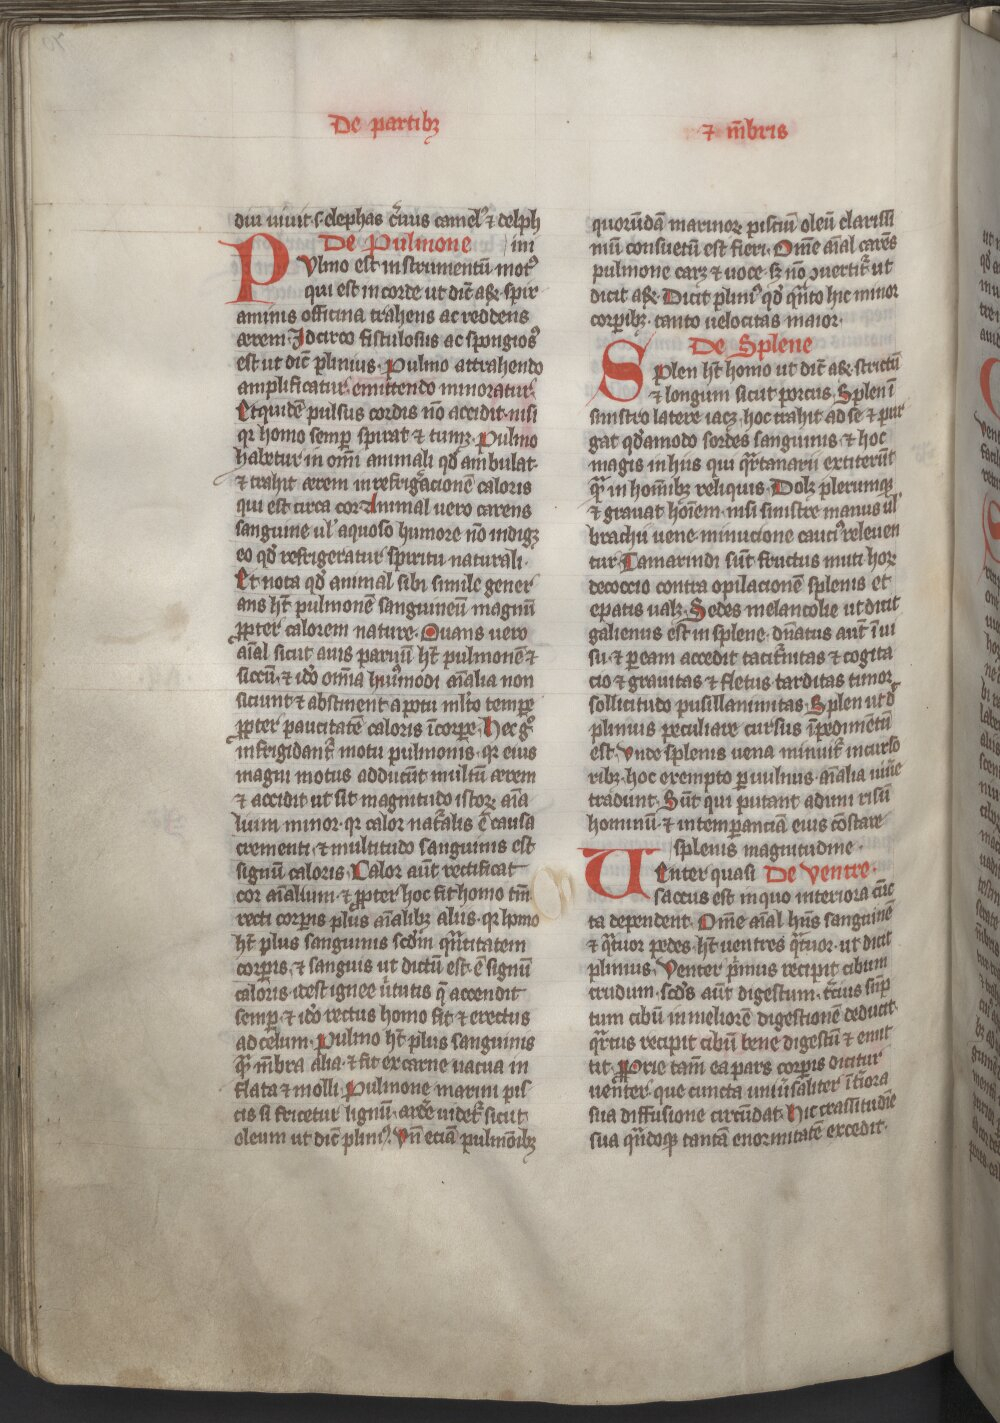 De partibꝫ
⁊ m̄bris
diu uiuit· s· elephas c̾uus camelꝰ ⁊ delph
De Pulmone ini
PVlmo est instrumentū motꝰ
qui est in corde ut dic̄ aꝶ· spir
aminis officina trahens ac reddens
aerem· Idcirco fistulosus ac spongiosꝰ
est ut dic̄ plinius· Pulmo attrahendo
amplificatur· emittendo minoratur·
Et quidē pulsus cordis nō accidit· nisi
qr homo semꝑ spirat ⁊ tumꝫ· Pulmo
habetur in om̄i animali qd̓ ambulat·
⁊ trahit aerem in refrigͣacionē caloris
qui est circa cor· Animal uero carens
sanguine ul̓ aquoso humore nō indigꝫ
eo qd̓ refrigeratur spiritu naturali·
Et nota qd̓ animal sibi simile gener
ans hꝫ pulmonē sanguineū magnū
ꝓpter calorem nature· Ouans uero
aīal sicut auis paruū hꝫ pulmonē ⁊
siccū· ⁊ id̓o om̄ia huiꝰmodi aīalia non
siciunt ⁊ abstinent a potu ml̓to tempe
ꝓpter paucitatē caloris ī corpe· Hec gͦ
infrigidantᷣ motu pulmonis· qr eius
magni motus adducūt multū aerem
⁊ accidit ut sit magnitudo istoꝝ aīa
lium minor· qr calor natᷣalis ē causa
crementi· ⁊ multitudo sanguinis est
signū caloris· Calor aūt rectificat
cor aīalium· ⁊ ꝓpter hoc fit homo tm̄
recti corꝑis plus aīalibꝫ aliis· qr homo
hꝫ plus sanguinis scd̓m qͣntitatem
corꝑis· ⁊ sanguis ut dictū est· ē signū
caloris· idest ignee u̓tutis q̄ accendit
semꝑ· ⁊ id̓o rectus homo fit ⁊ erectus
ad celum· Pulmo hꝫ plus sanguinis
qͣm m̄bra alia· ⁊ fit ex carne uacua in
flata ⁊ molli· Pulmone marini pis
cis si fricetur lignū· ard̓e uidetᷣ sicut
oleum ut dic̄ pliniꝰ· Vn̄ eciā pulmōibꝫ
quorūdā marinoꝝ pisciū oleū clarissī
mū consuetū est fieri· Om̄e aīal carēs
pulmone carꝫ ⁊ uoce· sꝫ nō ꝯuertitᷣ ut
dicit aꝶ· Dicit pliniꝰ qd̓ qͣnto hic minor
corꝑibꝫ· tanto uelocitas maior·
De Splene
SPlen hꝫ homo ut dic̄ aꝶ· strictū
⁊ longum sicut porcus· Splen ī
sinistro latere iacꝫ· hoc trahit ad se ⁊ pur
gat qd̓amodo sordes sanguinis ⁊ hoc
magis in hiis qui qͣrtanarii extiterūt
qͣm in homībꝫ reliquis· Dolꝫ plerumqꝫ
⁊ grauat hoīem· nisi sinistre manus ul̓
brachii uene minucione cauciꝰ releuen
tur· Tamarindi sūt fructus muti hoꝝ
decoccio contra opilacionē splenis et
epatis ualꝫ· Sedes melancolie ut dicit
galienus est in splene· dn̄atus aūt ī ui
su· ⁊ ꝑ eam accedit tacitᷣnitas ⁊ cogita
cio ⁊ grauitas ⁊ fletus tarditas timor
sollicitudo pusillanimitas· Splen ut d̓
plinius peculiare cursus īpedimētū
est· Vnde splenis uena minuitᷣ in curso
ribꝫ· hoc exempto ꝑ uulnus· aīalia uiu̓e
tradunt· Sūt qui putant adimi risū
hominū· ⁊ intemꝑanciā eius cōstare
splenis magnitudine·
UEnter quasi De Ventre·
saccus est in quo interiora cūc
ta dependent· Om̄e aīal hn̄s sanguinē
⁊ qͣtuor pedes· hꝫ uentres qͣtuor· ut dicit
plinius· Venter pͥmus recipit cibum
crudum· scd̓s aūt digestum· t̓cius sūp
tum cibū in meliorē digestionē deducit·
qͣrtus recipit cibū bene digestū ⁊ emit
tit· Proprie tam̄ ea pars corꝑis dicitur
uenter que cuncta uniu̓saliter īt̓iora
sua diffusione circūdat· Hic crassitudīe
sua qn̄doqꝫ tantā enormitatē excedit·